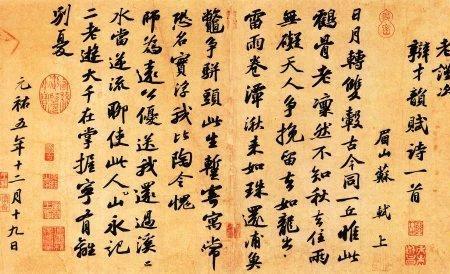 老謹次
辯才韻賦詩一首
眉山蘇軾上
日月轉雙轂古今同一丘惟此
鶴骨老凜然不知秋去住兩
無礙天人爭挽留去如龍出山
雷雨卷潭湫来如珠還浦魚
鼈爭駢頭此生蹔寄寓常
恐名實浮我比陶令愧
師為遠公優送我還過溪〻
水當逆流聊使此人山永記
二老遊大千在掌握寧有離
別憂
元祐五年十二月十九日